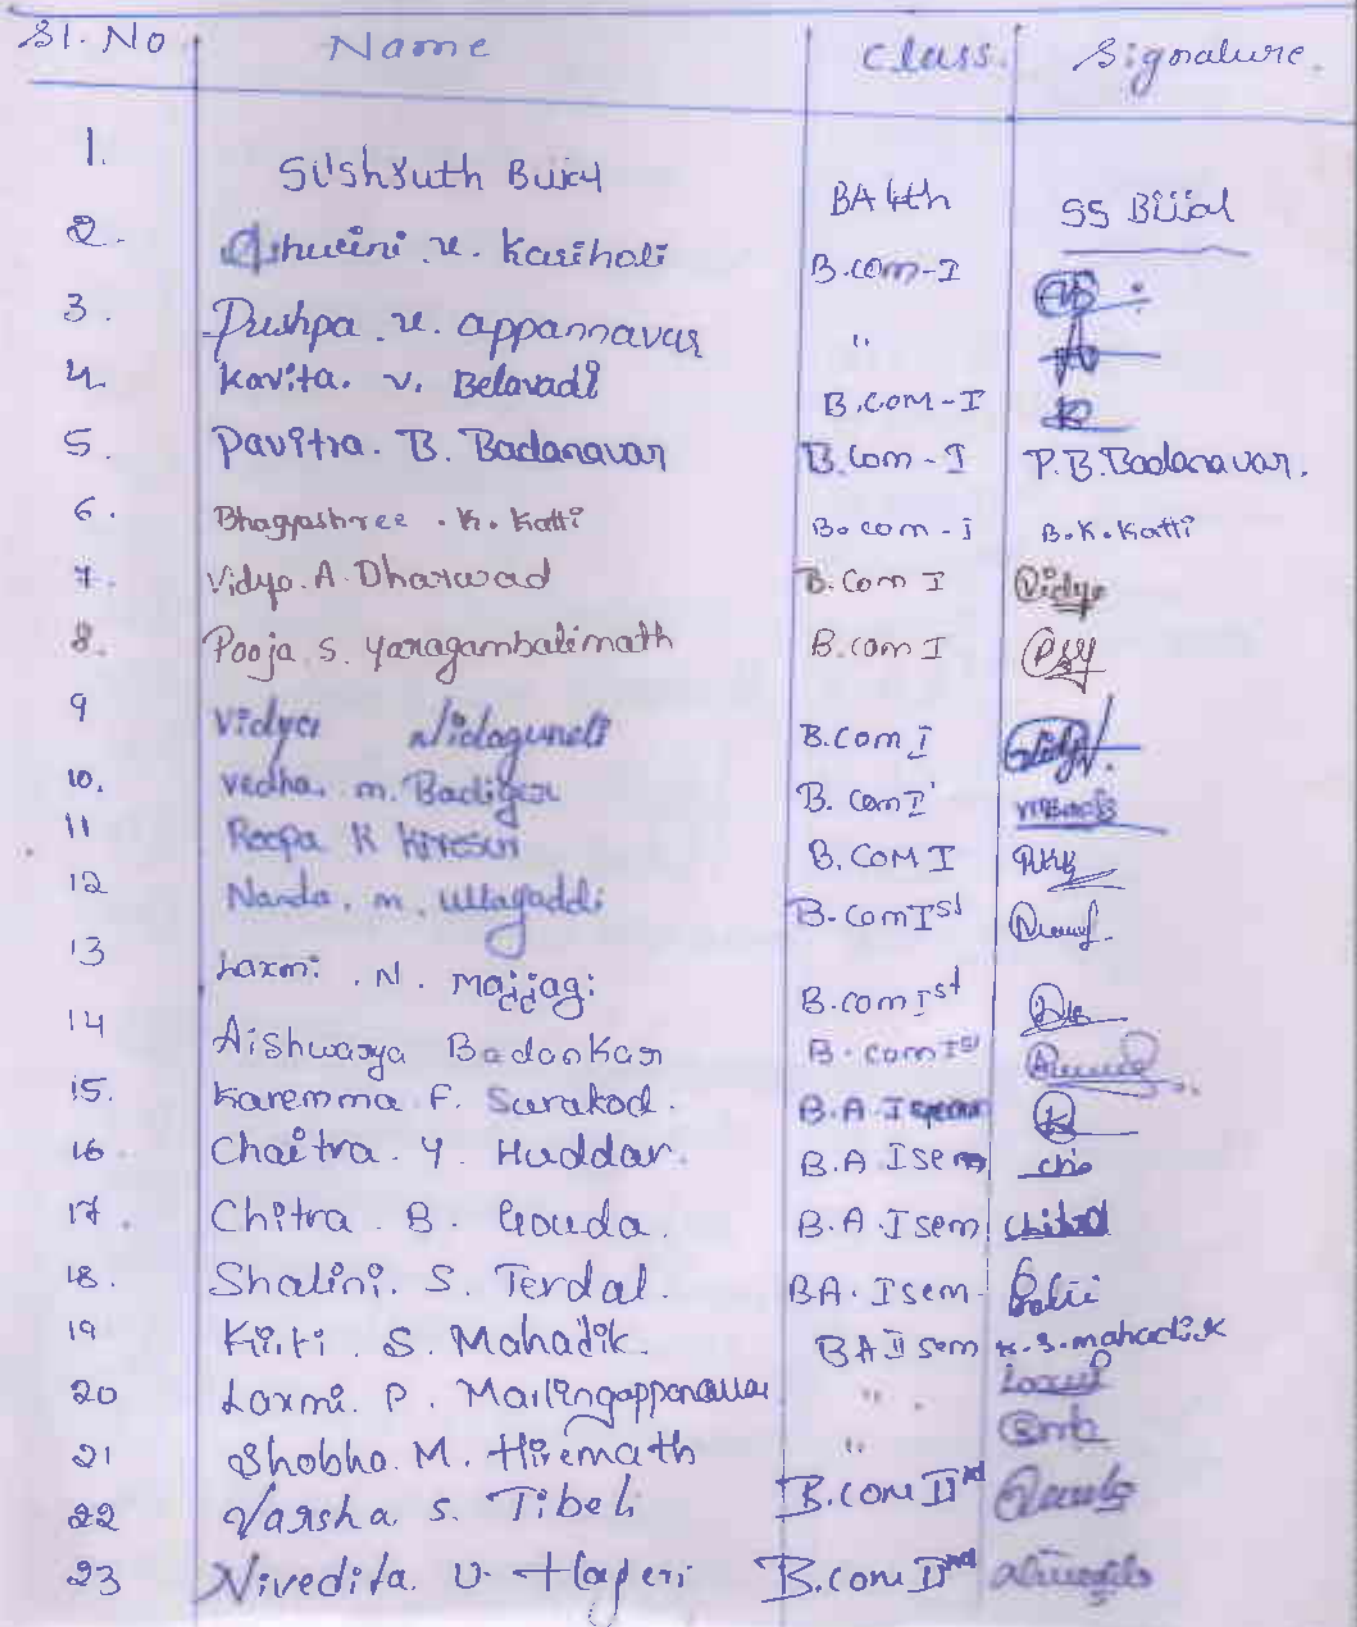 Sl. No Name Class. Signature.
1. Sushruth Bijjal BA 4th SS Bijjal
2. Ashwini. V. Karihali B.com-I
3. Pushpa. V. Appannavar "
4. Kavita. V. Belavadi B.COM-I
5. Pavitra. B. Badanavar B.Com-I P.B.Badanavar.
6. Bhagyashree. K. Katti B.com-I B.K.Katti
7. Vidya. A. Dharwad B.Com I Vidya
8. Pooja. S. Yaragambalimath B.com I
9 Vidya Nidagundi B.Com I
10. Vedha. m. Badiger B. Com I
11 Roopa K Kiresur B.COM I
12 Nanda. m. Ullagaddi B.Com Ist
13 Laxmi. N. Majjagi B.com Ist
14 Aishwarya Badankar B.com Ist
15. Karemma F. Surakod. B.A I
16. Chaitra. Y. Huddar. B.A I sem
17. Chitra. B. Gouda. B.A. I sem Chitra
18. Shalini. S. Terdal. BA. I sem
19 Kirti. S. Mahadik. BA II sem K.S.mahadik
20 Laxmi. P. Mallingappanavar " Laxmi
21 Shobha. M. Hiremath "
22 Varsha. S. Tibeli B.com IInd
23 Nivedita. V. Hageri B.com IInd